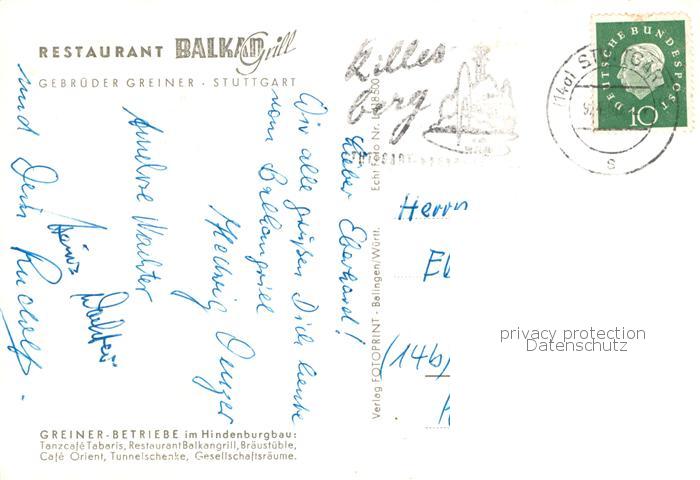 RESTAURANT BALKAN Grill
GEBRÜDER GREINER · STUTTGART
Lieber Eberhard!
Wir alle grüßen Dich heute
vom Balkangrill
Hedwig
Annelore Wachter
Heinz Wachter
und Dein Rudolf.
GREINER-BETRIEBE im Hindenburgbau:
Tanzcafé Tabaris, Restaurant Balkangrill, Bräustüble,
Café Orient, Tunnelschenke, Gesellschaftsräume.
Verlag FOTOPRINT · Balingen/Württ.
Echt Foto Nr.
Killes
berg
(14a) STUTTGART
s
DEUTSCHE BUNDESPOST
10
Herrn
(14b)
privacy protection
Datenschutz